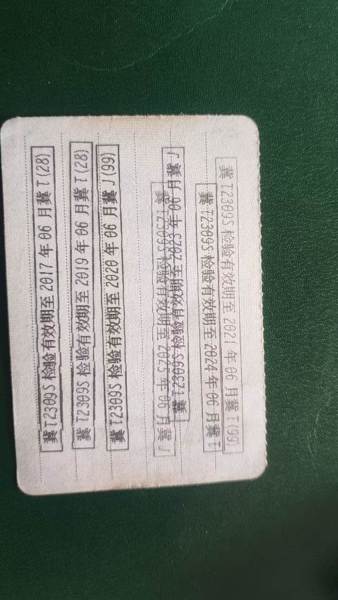 冀T2309S 检验有效期至 2017 年 06 月冀 T(28)
冀T2309S 检验有效期至 2019 年 06 月冀 T(28)
冀T2309S 检验有效期至 2020 年 06 月冀 J(99)
冀T2309S 检验有效期至 2025 年 06 月冀 J
冀T2309S 检验有效期至 2023 年 06 月冀 J
冀T2309S 检验有效期至 2024 年 06 月冀
冀T2309S 检验有效期至 2021 年 06 月冀 T(99)